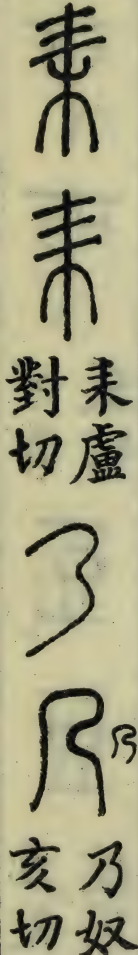 耒耒
耒盧
對切
乃乃
乃奴
亥切